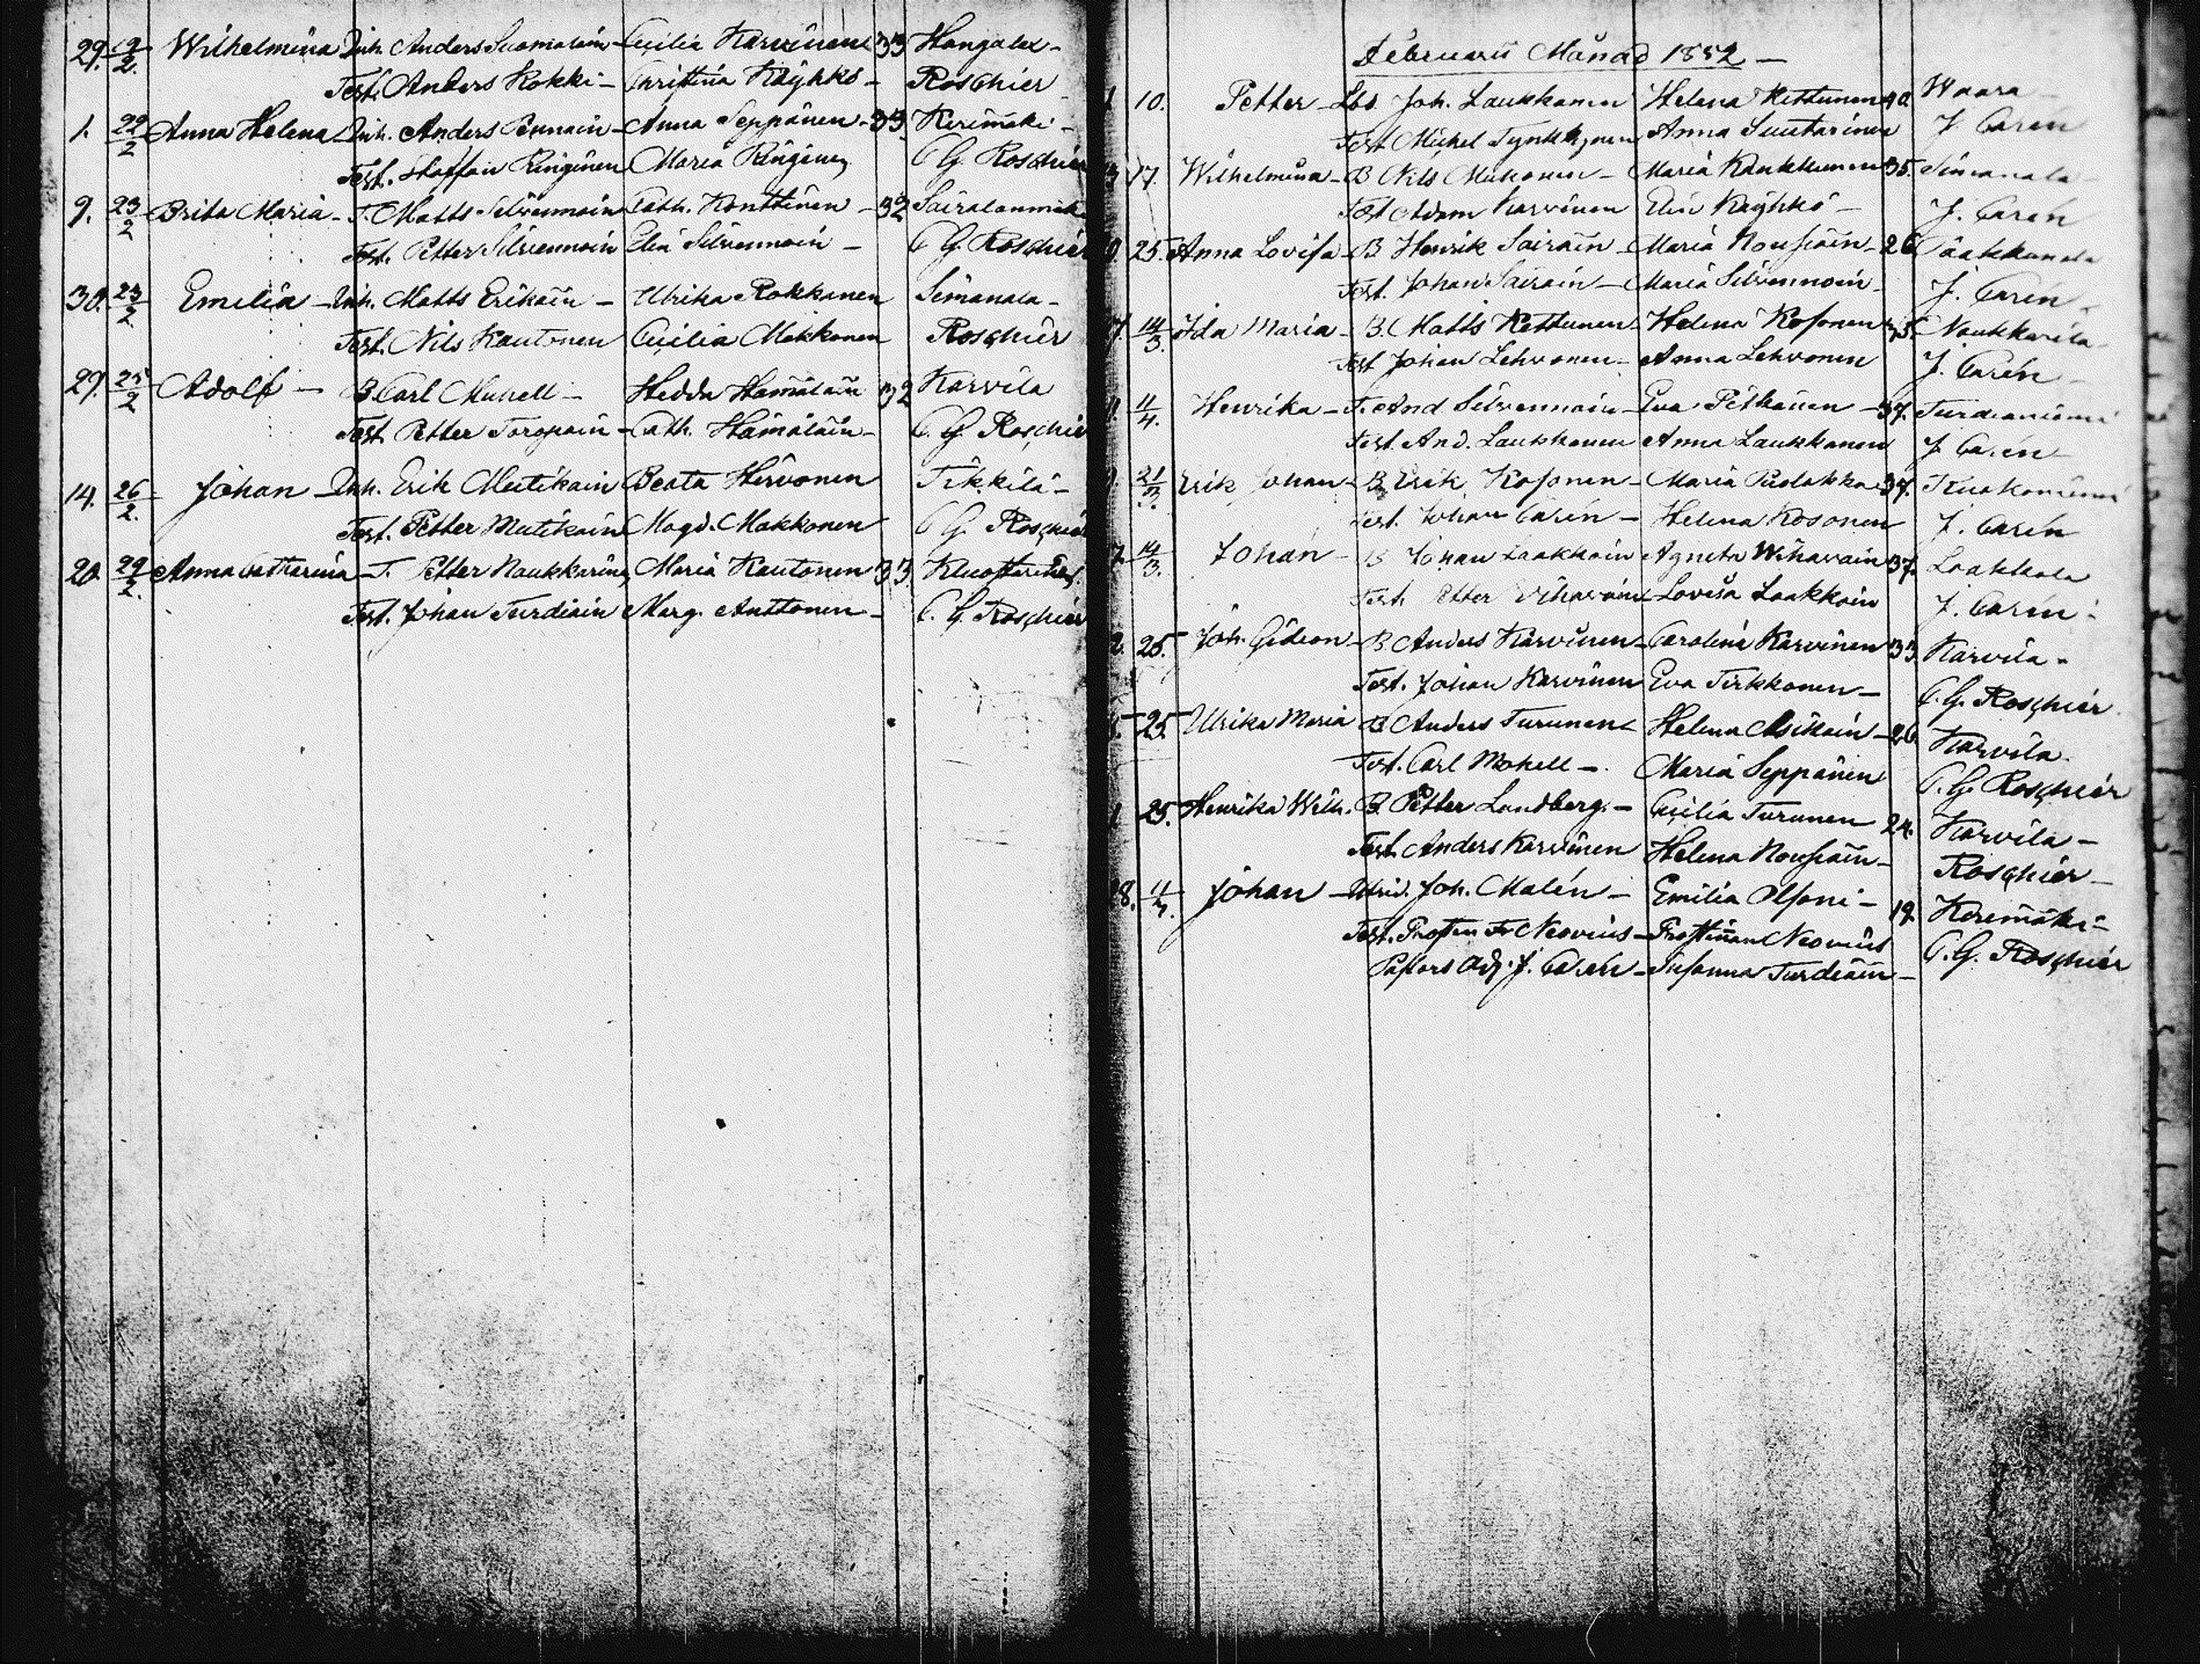 29. 19/2. Wilhelmina Inh. Anders Suomalain - Cecilia Karvinen 33 Hangalax -
Test. Anders Kokki - Christina Käyhkö - Roschier
1. 22/2 Anna Helena Inh. Anders Pennain - Anna Seppänen - 33. Kerimäki -
Test. Staffan Ringinen Maria Ringinen C. G. Roschier
9. 23/2 Brita Maria - T. Matts Silvennoin Cath. Konttinen - 32
Test. Petter Silvennoin Elin Silvennoin - C G. Roschier
30. 23/2. Emilia - Inh. Matts Erikäin - Ulrika Rokkanen Simanala -
Test. Nils Kautonen Cecilia Makkonen Roschier
29. 25/2 Adolf - B. Carl Muhell - Hedda Hämäläin 32 Karvila
Test. Petter Toropain - Cath. Hämäläin - C. G. Roschier
14. 26/2. Johan - Inh. Erik Mutikain Beata Hirvonen Tikkilä -
Test. Petter Mutikain Magd. Makkonen C G. Roschier
20. 29/2. Anna Catharina - T. Petter Naukkarinen Maria Kautonen 33
Test. Johan Turdiain Marg. Anttonen - C. G. Roschier
Februarii Månad 1852 -
10. Petter - Joh. Laukkanen Helena Kettunen 40. Waara
Test. Michel Tynkkynen Anna Suutarinen J. Carén
17. Wilhelmina - B Nils Makonen - Maria Kankkunen 35. Simanala
Test Adam Karvinen Elin Käyhkö - J. Carén
25. Anna Lovisa - B Henrik Sairain - Maria Nousiain - 26
Test. Johan Sairain - Maria Silvennoin - J. Carén -
14/3. Ida Maria - B. Matts Kettunen - Helena Kosonen 35. Naukkarila
Test Johan Lehvonen - Anna Lehvonen J. Carén -
11/4. Henrika - T. And Silvennoin - Eva Pitkänen - 37. Turdianiemi
Test. And. Laukkanen Anna Laukkanen J. Carén -
21/3. Erik Johan - B. Erik Kosonen - Maria Puolakka - 37.
Test. Johan Carén - Helena Kosonen J. Carén
14/3. Johan - B Johan Laakkoin Agneta Wihavain 37. Laakkola
Test. Petter Vihavain - Lovisa Laakkoin J. Carén -
25. Joh. Gideon - B. Anders Karvinen - Carolina Karvinen 33 Karvila -
Test. Johan Karvinen Eva Tirkkonen - C. G. Roschier
25. Ulrika Maria B. Anders Turunen - Helena Asikain - 26. Karvila.
Test. Carl Mohell - Maria Seppänen C. G. Roschier
25. Henrika Wilh. B. Petter Landberg. - Cecilia Turunen 24. Karvila -
Test. Anders Karvinen Helena Nousiain - Roschier -
28. 11/4. Johan - Joh. Malén - Emilia Olsoni - 19. Kerimäki -
Test. Prosten Fr Neovius - Prostinnan Neovius C. G. Roschier
Pastors Adj. J. Carén - Susanna Turdiain -